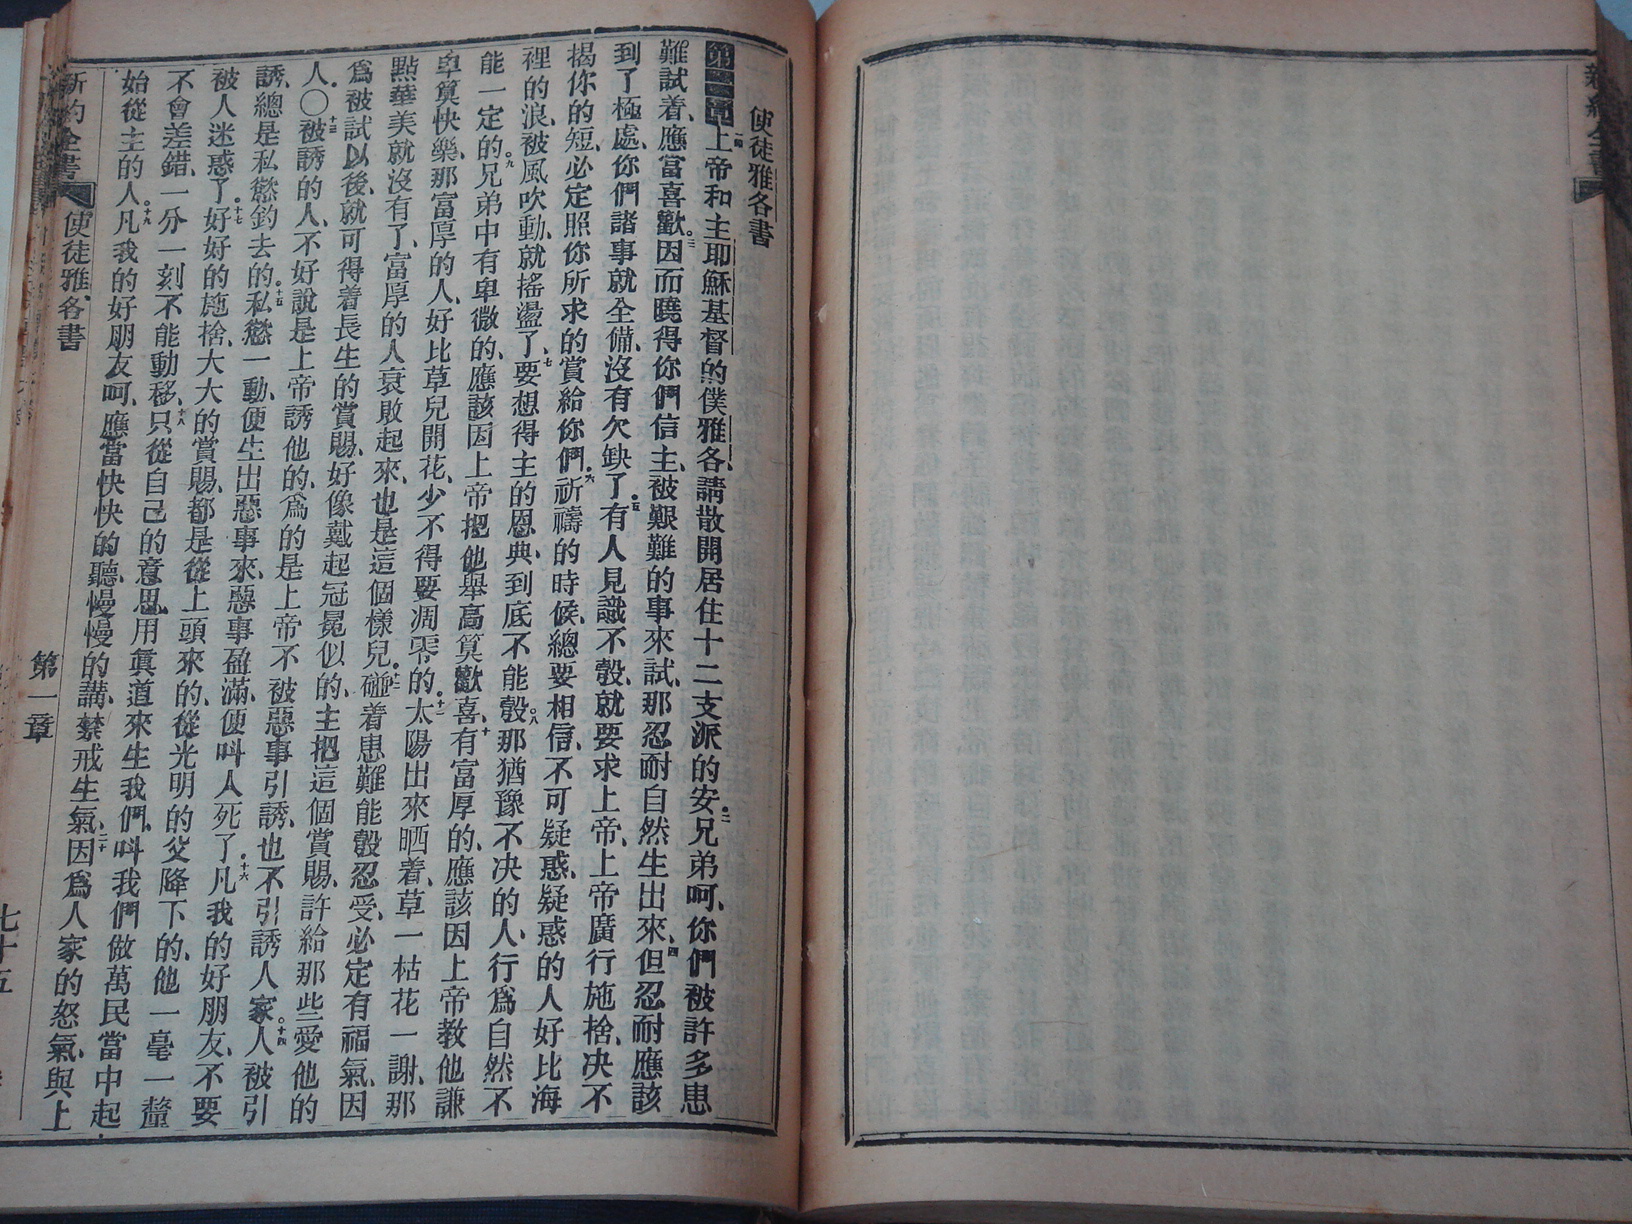 使徒雅各書
第一章上帝和主耶穌基督的僕雅各、請散開居住十二支派的安。二兄弟呵、你們被許多患
難試着、應當喜歡。三因而曉得你們信主、被艱難的事來試、那忍耐自然生出來、四但忍耐應該
到了極處、你們諸事就全備、沒有欠缺了。五有人見識不彀、就要求上帝、上帝廣行施捨、决不
揭你的短、必定照你所求的賞給你們。六祈禱的時候、總要相信、不可疑惑、疑惑的人好比海
裡的浪、被風吹動、就搖盪了、七要想得主的恩典、到底不能彀。八那猶豫不决的人、行爲自然不
能一定的。九兄弟中有卑微的、應該因上帝把他舉高算歡喜、十有富厚的、應該因上帝教他謙
卑算快樂、那富厚的人、好比草兒開花、少不得要凋零的、十一太陽出來晒着、草一枯花一謝、那
點華美就沒有了、富厚的人衰敗起來、也是這個樣兒。十二碰着患難能彀忍受、必定有福氣、因
爲被試以後、就可得着長生的賞賜、好像戴起冠冕似的、主把這個賞賜、許給那些愛他的
人。〇十三被誘的人、不好說是上帝誘他的、爲的是上帝不被惡事引誘、也不引誘人家。十四人被引
誘、總是私慾釣去的。十五私慾一動、便生出惡事來、惡事盈滿、便叫人死了。十六凡我的好朋友、不要
被人迷惑了。十七好好的施捨、大大的賞賜、都是從上頭來的、從光明的父降下的、他一毫一釐
不會差錯、一分一刻不能動移、十八只從自己的意思、用眞道來生我們、叫我們做萬民當中起
始從主的人。十九凡我的好朋友呵、應當快快的聽、慢慢的講、禁戒生氣、二十因爲人家的怒氣、與上
新約全書 使徒雅各書 第一章 七十五